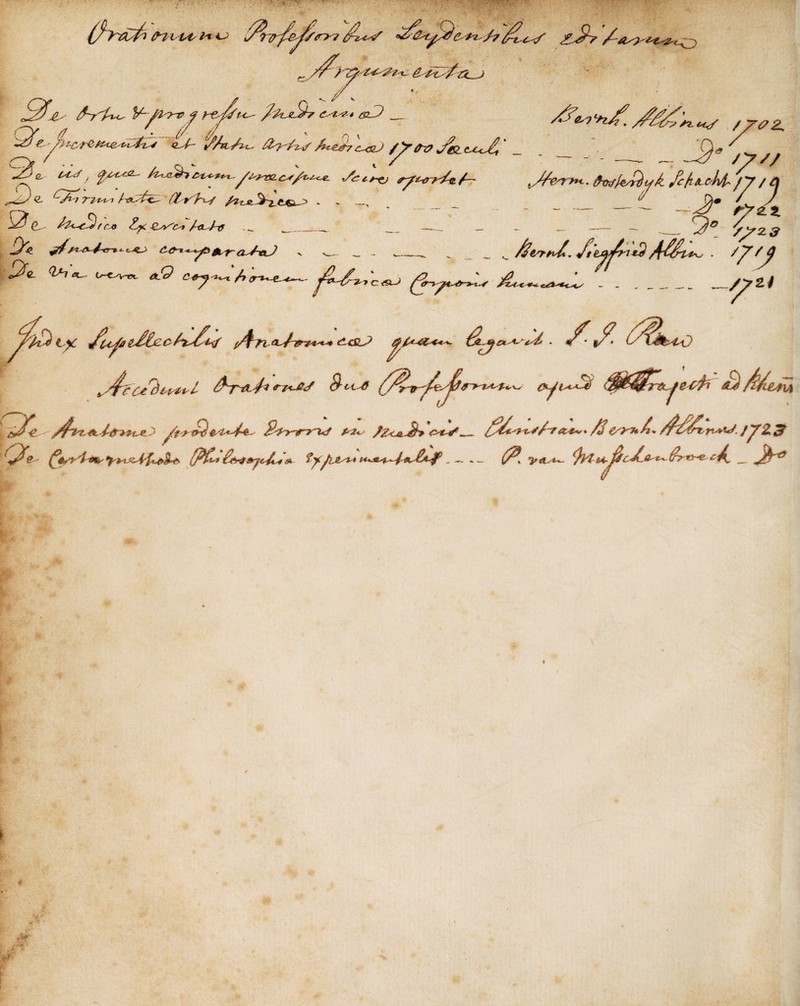 Orationum Professoribus Leydensibus editarum
Argumenta
De Ortu & progressu Medicinæ — Bernh. Albinus 1702
De Incrementis et Statu Artis Medicæ 1700 Sæculi - . — - . — — Do 1711
De iis, quæ Medicum præcipue scire oportet - Herm. Oosterdyk Schacht 1719
De Firmitate Artis Medicæ - . - — . — — Do 1722
De Medico Exercitato - — — - — — Do 1723
De Anatome comparata - — — - — - Bernh. Siegfried Albin . 1719
De Via vera ad cognitionem fabricæ Corporis humani - - - - — 1721
Index Supellectilis Anatomicæ quam legavit . J. J. Rau
Accedunt Orationes duo Professorum apud Trajecti ad Rhenu
De Anatome prodente Erroris in Medicis — Christian. Bernh. Albinus. 1723
De Certa methodo Philosophia Experimentalis . - - - P. van Musschenbroeck - Do